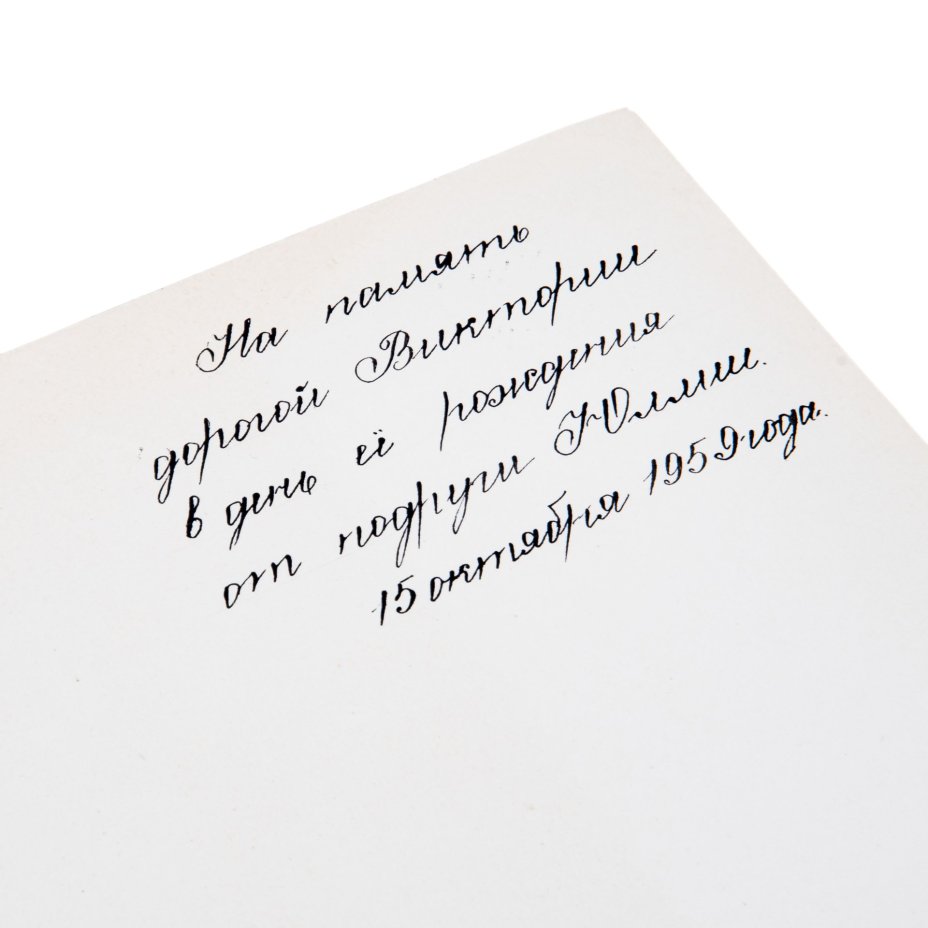 На память
дорогой Виктории
в день её рождения
от подруги
15 октября 1959 года.